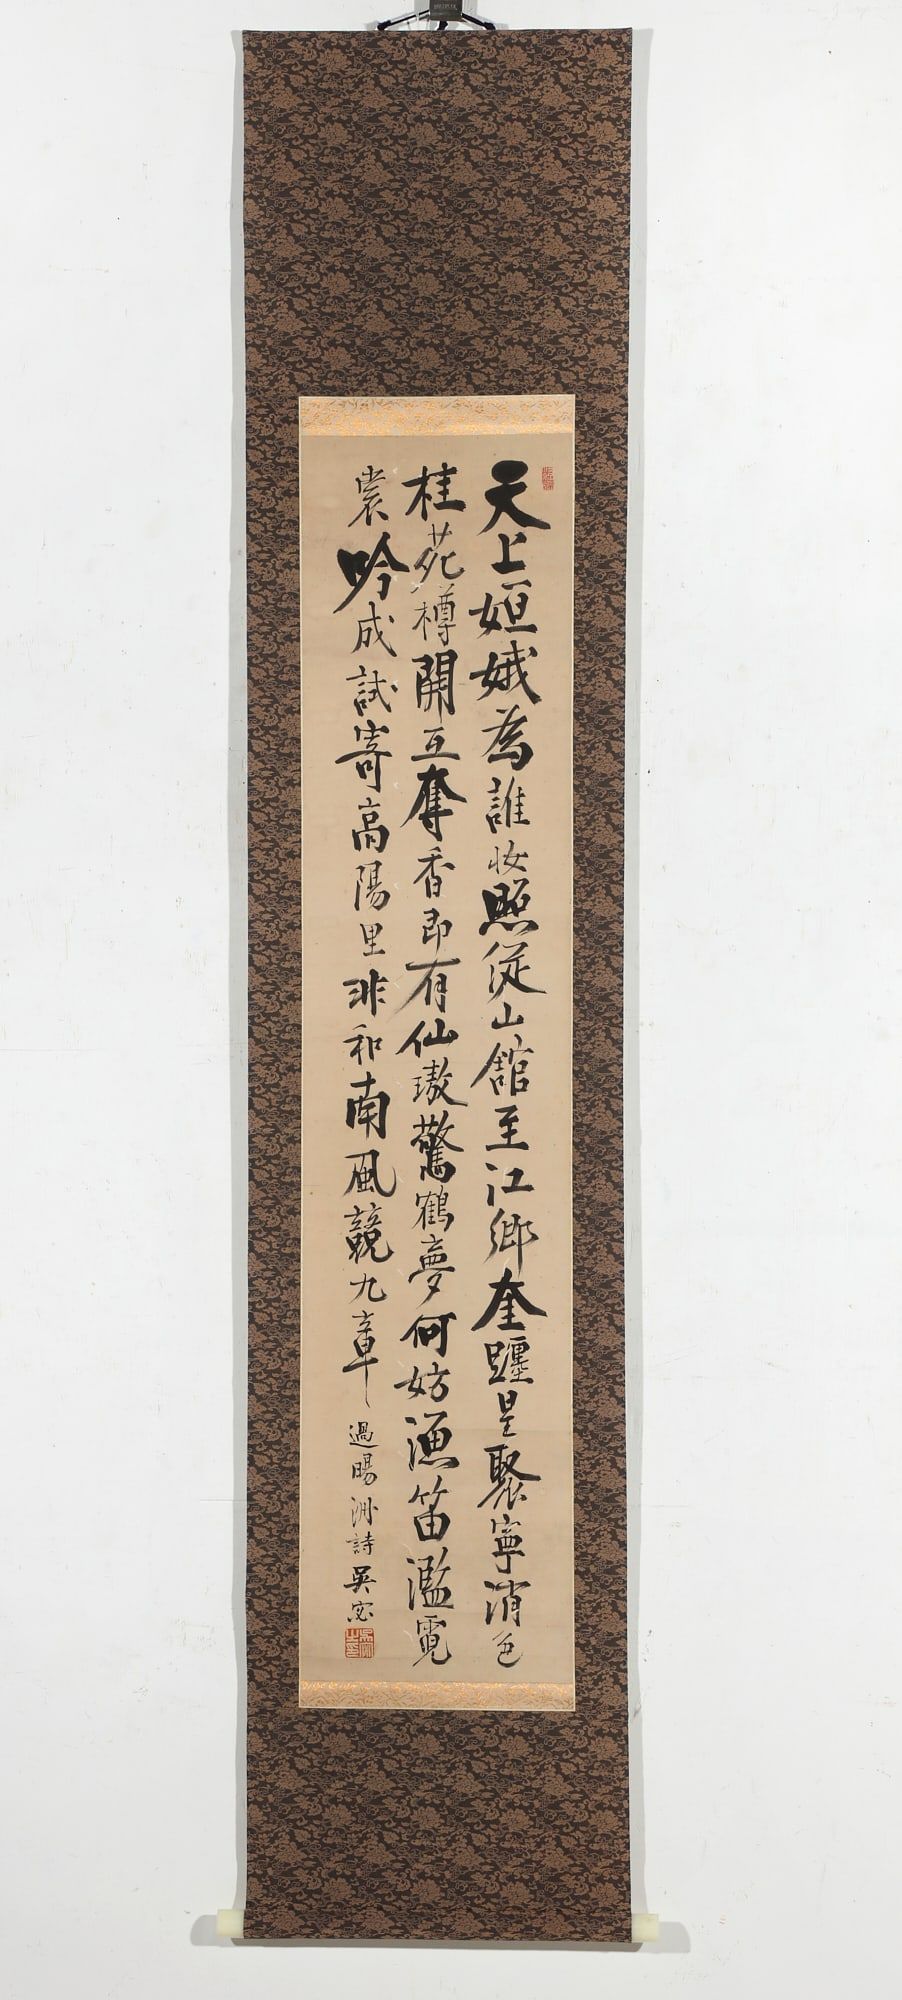 天上姮娥為誰妝照從山館至江鄉奎躔星聚寧消色
桂花樽開互奪香即有仙璈驚鶴夢何妨漁笛濫霓
裳吟成試寄高陽里非和南風競九章
過暘洲詩吳寬